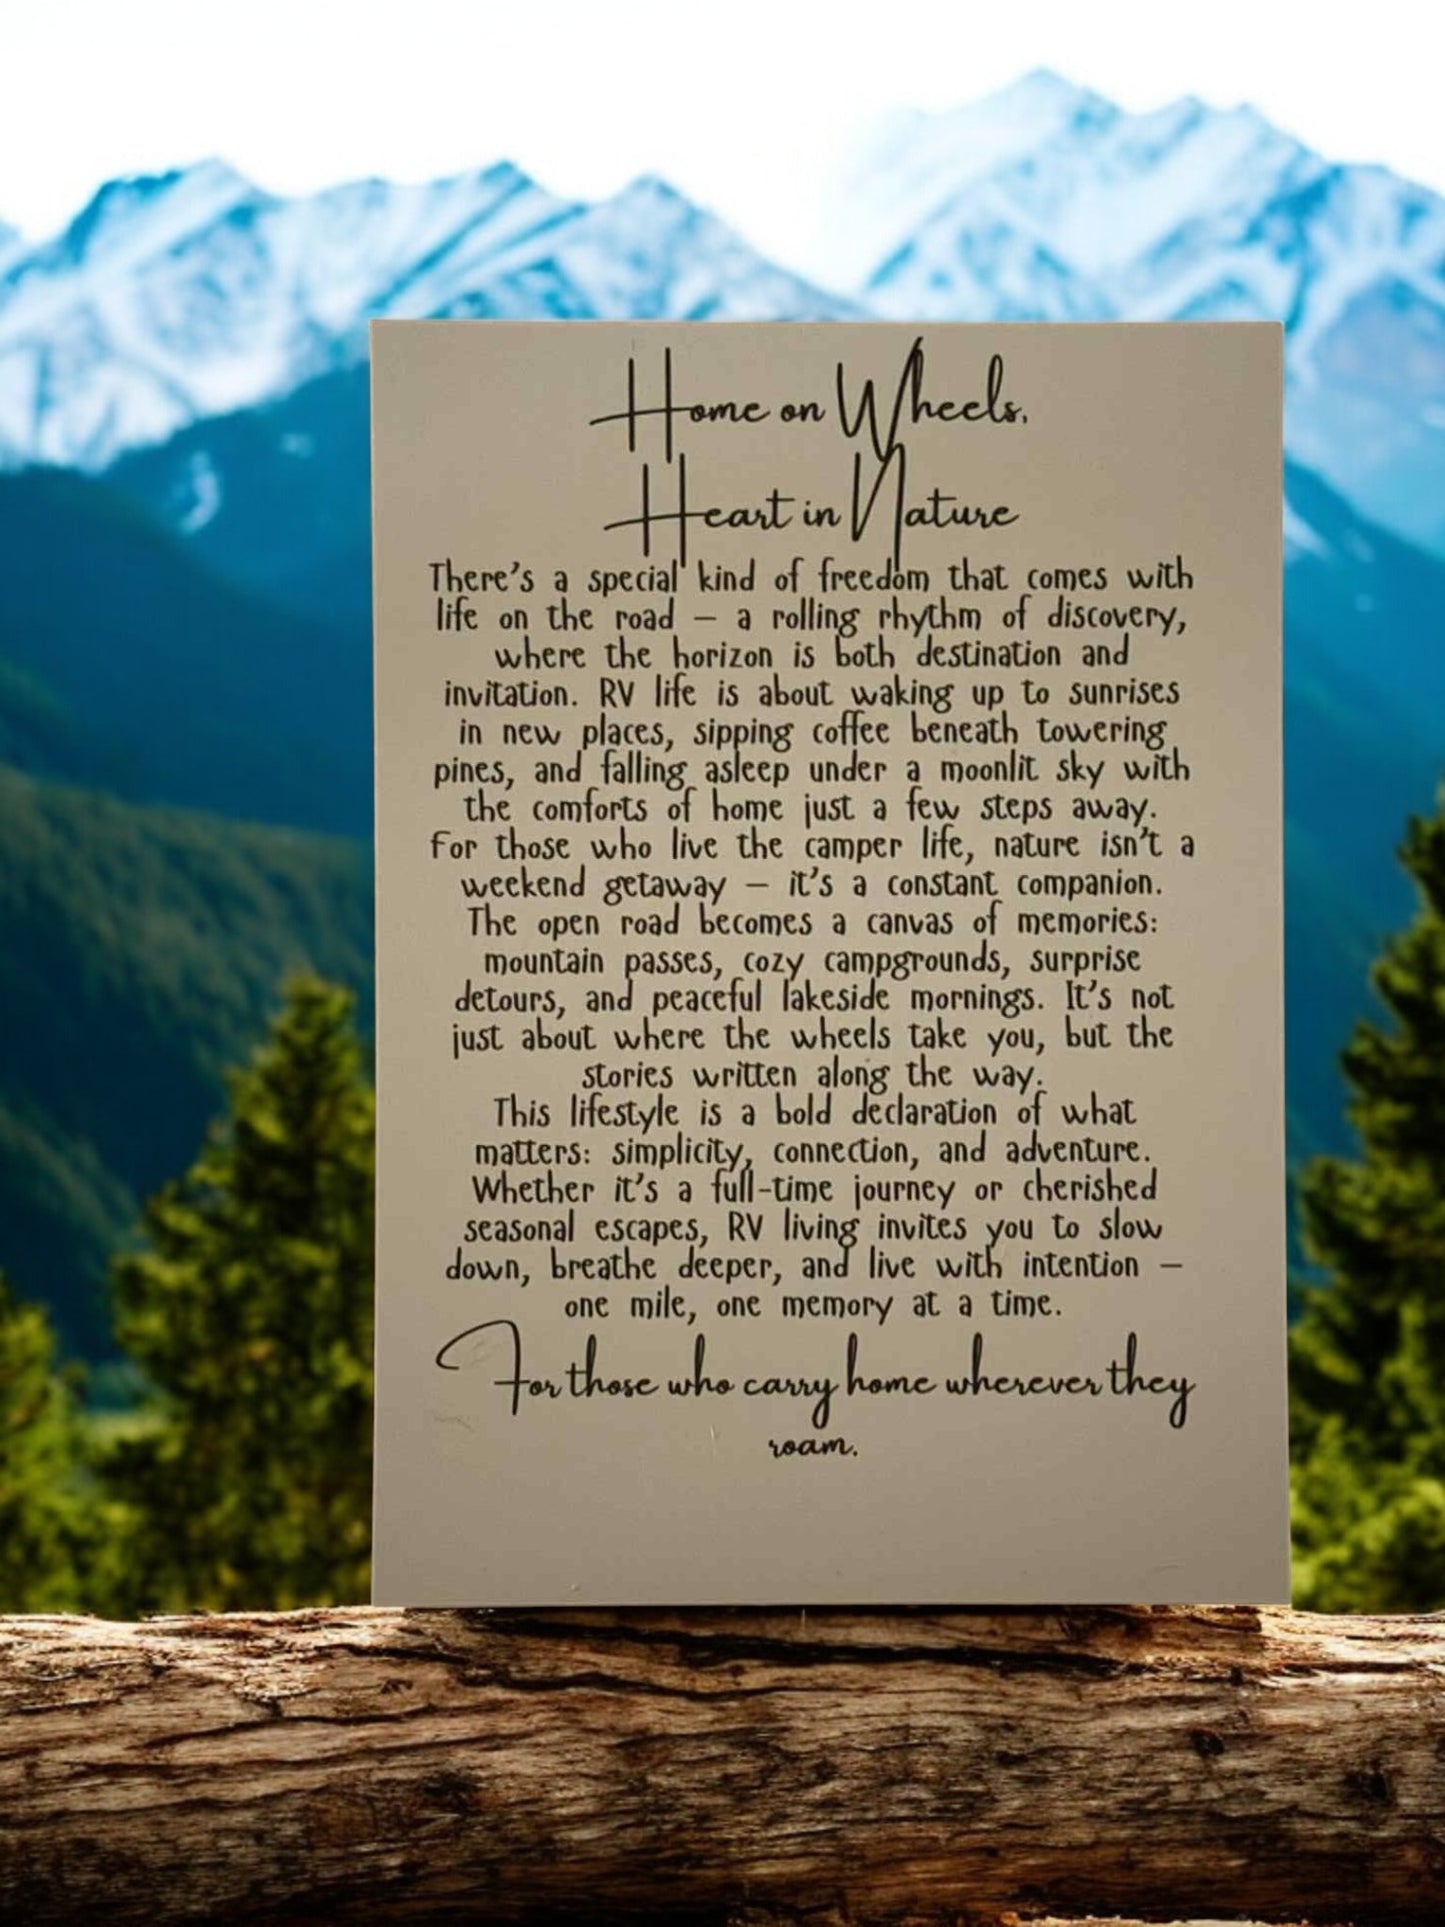 Home on Wheels,
Heart in Nature
There's a special kind of freedom that comes with
life on the road – a rolling rhythm of discovery,
where the horizon is both destination and
invitation. RV life is about waking up to sunrises
in new places, sipping coffee beneath towering
pines, and falling asleep under a moonlit sky with
the comforts of home just a few steps away.
For those who live the camper life, nature isn't a
weekend getaway – it's a constant companion.
The open road becomes a canvas of memories:
mountain passes, cozy campgrounds, surprise
detours, and peaceful lakeside mornings. It's not
just about where the wheels take you, but the
stories written along the way.
This lifestyle is a bold declaration of what
matters: simplicity, connection, and adventure.
Whether it's a full-time journey or cherished
seasonal escapes, RV living invites you to slow
down, breathe deeper, and live with intention –
one mile, one memory at a time.
For those who carry home wherever they
roam.